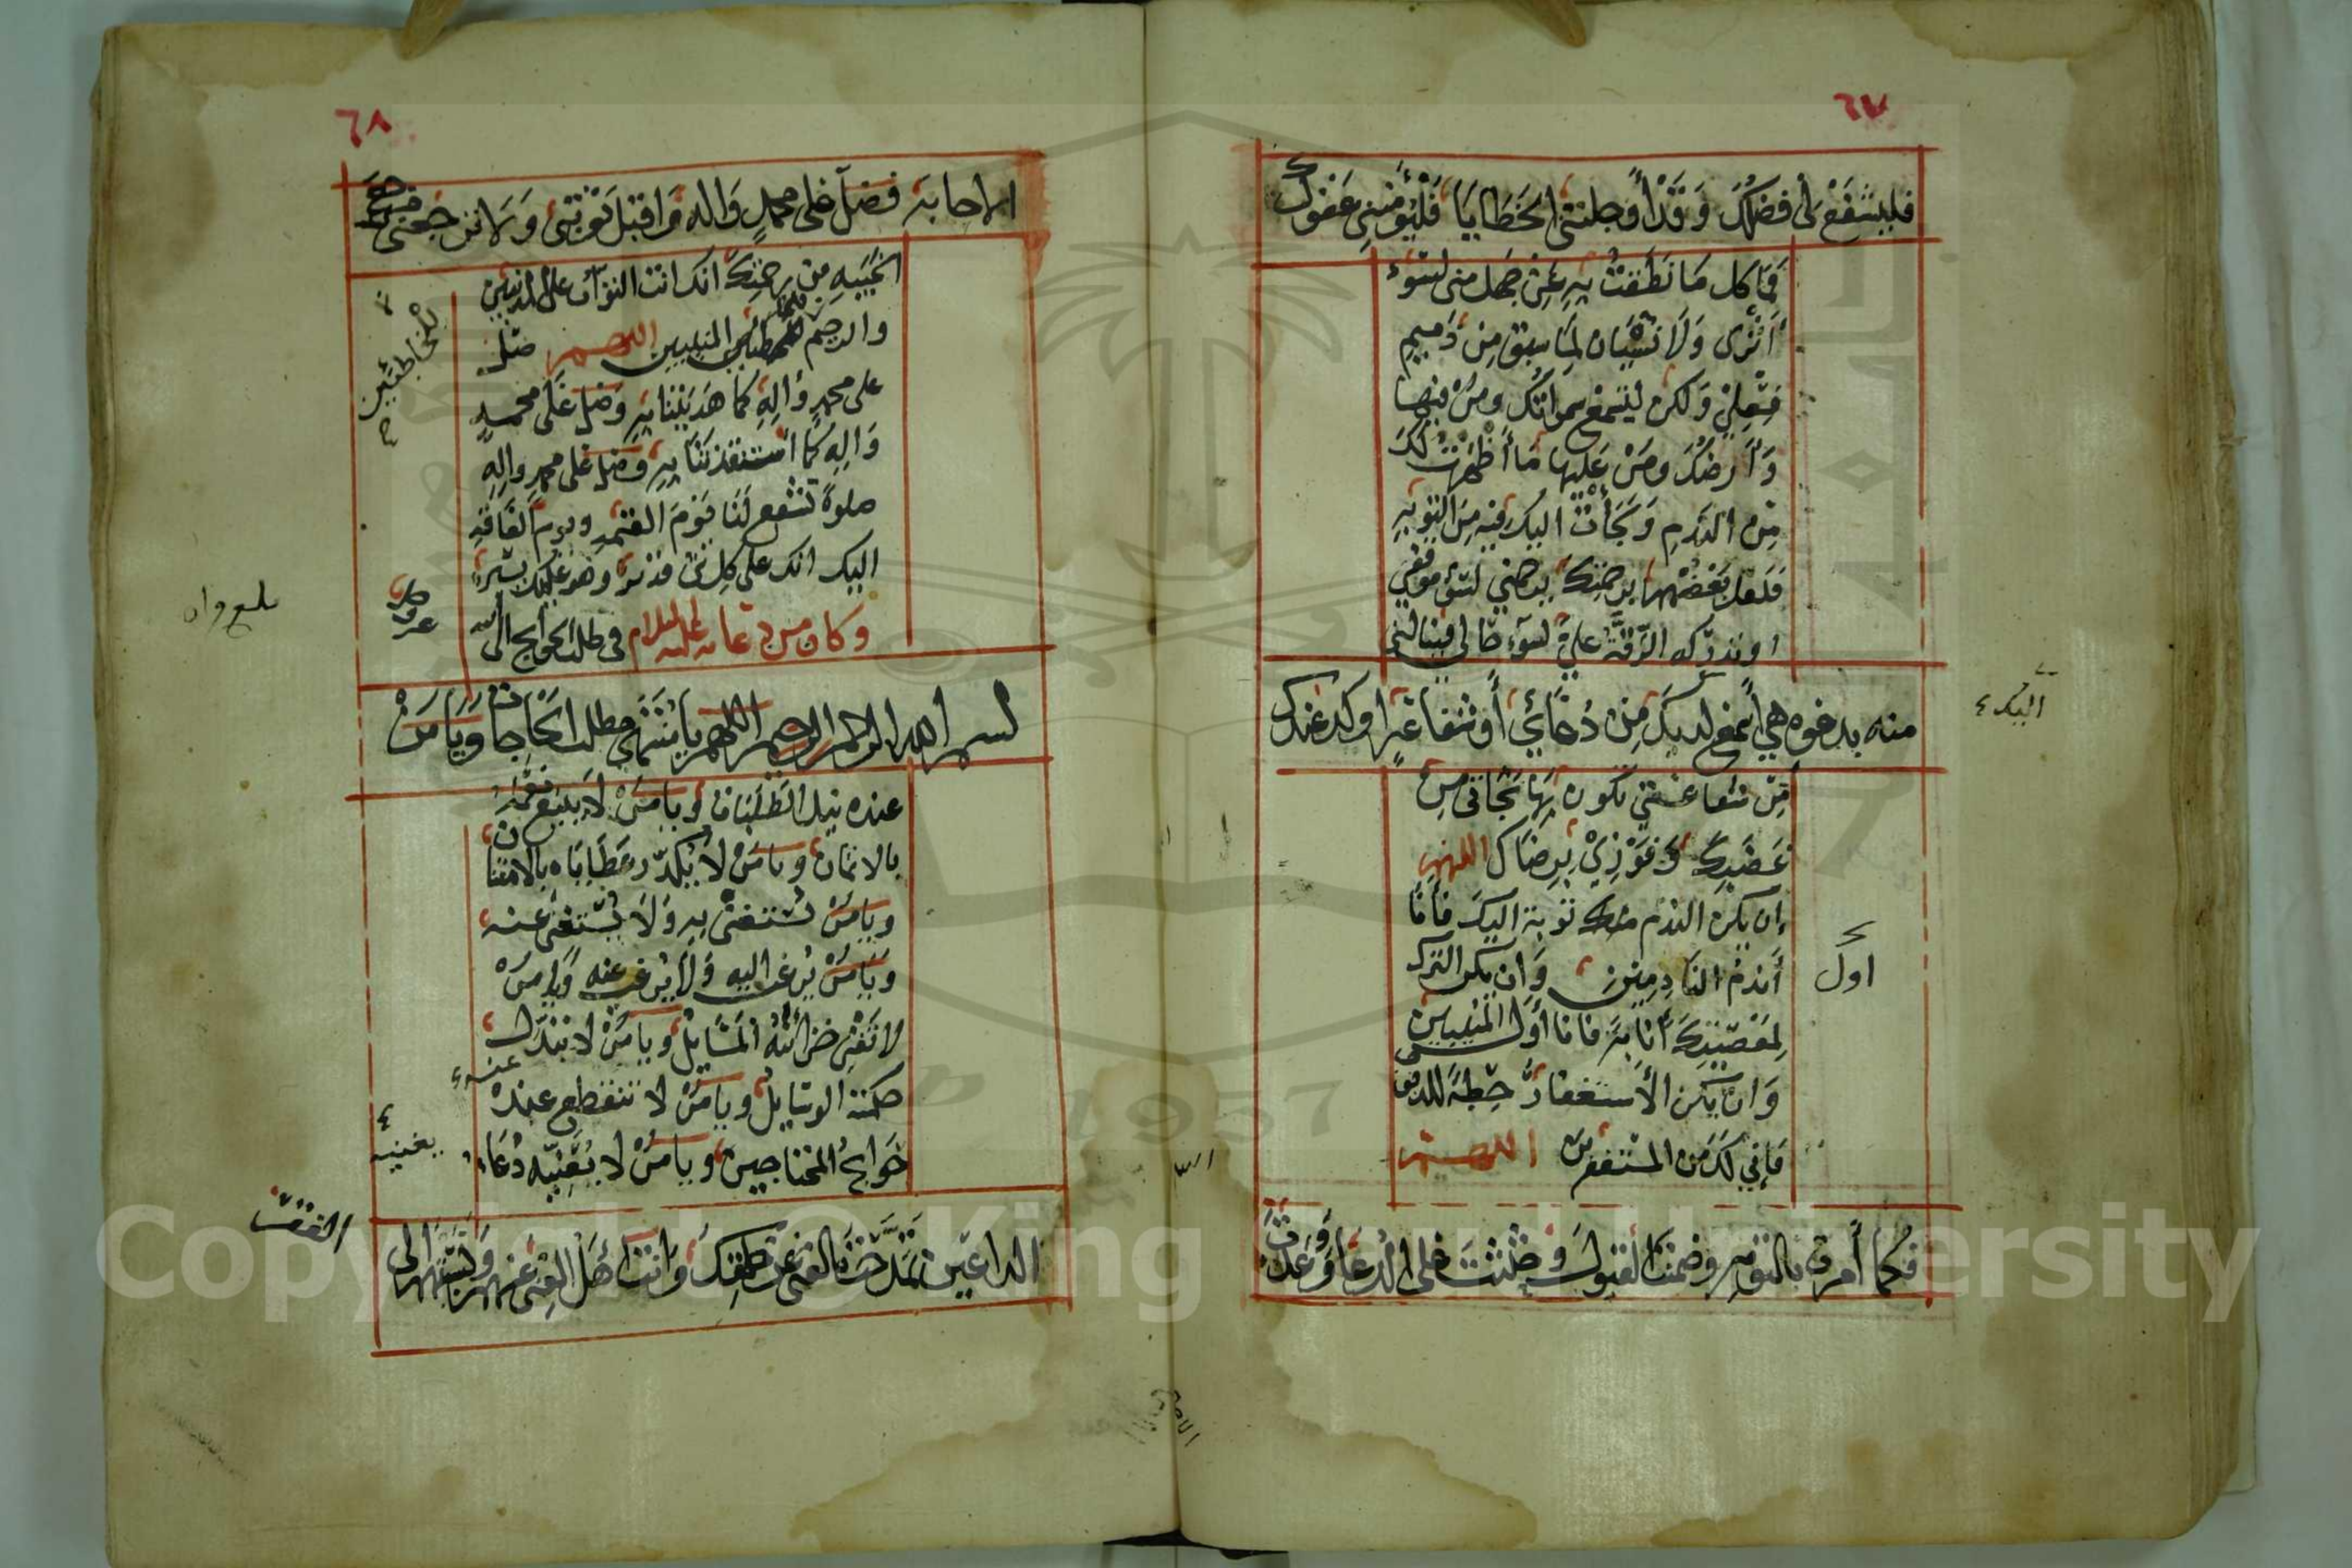 ٦٧
فليشفع لي فضلك وقد أوجلتني الخطايا فليؤمني عفوك
فما كل ما نطقت به عن جهل مني لسوء
أثري ولا نسيان لما سبق من ذميم
فعلي ولكن لتسمع سمواتك ومن فيها
وأرضك ومن عليها ما أظهرت لك
من الندم ولجأت اليك فيه من التوبة
فلعل بعضهم برحمتك يرحمني لسوء موقفي
او تدركه الرقة علي لسوء حالي فينالني
منه بدعوة هي أسمع لديك من دعائي أو شفاعة اوكد عندك
اليك
من شفاعتي تكون بها نجاتي من
غضبك وفوزي برضاك اللهم
إن يكن الندم توبة اليك فأنا
أندم النادمين وان يكن الترك
اول
لمعصيتك انابة فانا أول المنيبين
وان يكن الاستغفار حطة للذنوب
فإني لك من المستغفرين اللهم
فكما أمرت بالتوبة وضمنت القبول وحثثت على الدعاء ووعدت
٦٨
الاجابة فصل على محمد واله واقبل توبتي ولا ترجعني مرجع
الخيبة من رحمتك انك انت التواب على المذنبين
والرحيم المنيبين اللهم صل
للخاطئين
على محمد واله كما هديتنا به وصل على محمد
واله كما استنقذتنا به وصل على محمد واله
صلوة تشفع لنا يوم القيمة ويوم الفاقة
اليك انك على كل شئ قدير وهو عليك يسير
وكان من دعائه عليه السلام في طلب الحوائج الى الله
بسم الله الرحمن الرحيم اللهم يا منتهى مطلب الحاجات ويا من
عنده نيل الطلبات ويا من لا يبيع نعمه
بالاثمان ويا من لا يكدر عطاياه بالامتنان
ويا من يستغنى به ولا يستغنى عنه
ويا من يرغب اليه ولا يرغب عنه ويا من
لا تفنى خزائنه المسايل ويا من لا تبدل
حكمته الوسايل ويا من لا تنقطع عنه
عنه
حوائج المحتاجين ويا من لا يعنيه دعاء
يعنيه
الداعين تمدحت بالغنى عن خلقك وانت أهل الغنى عنهم ونسبتهم الى
الفقر